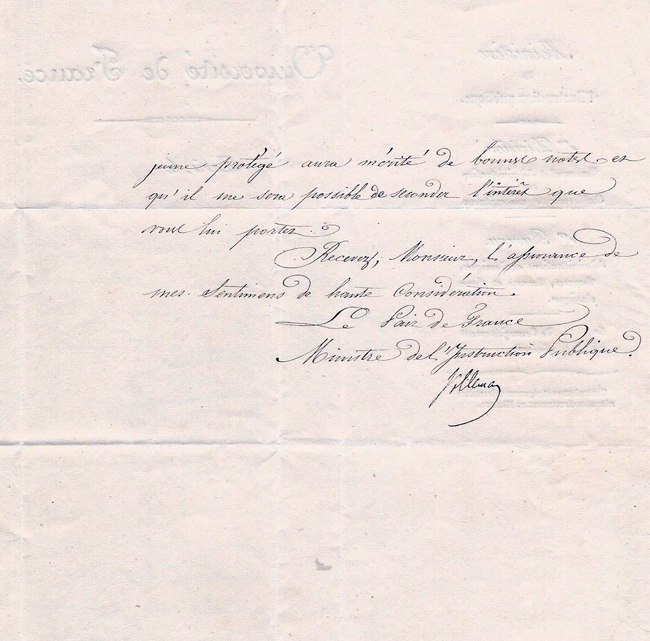 Université de France.
Ministère
jeune protégé aura mérité de bonnes notes et
qu'il me sera possible de seconder l'intérêt que
vous lui portez.
Recevez, Monsieur, l'assurance de
mes sentimens de haute considération.
Le Pair de France
Ministre de l'Instruction Publique.
Villemain